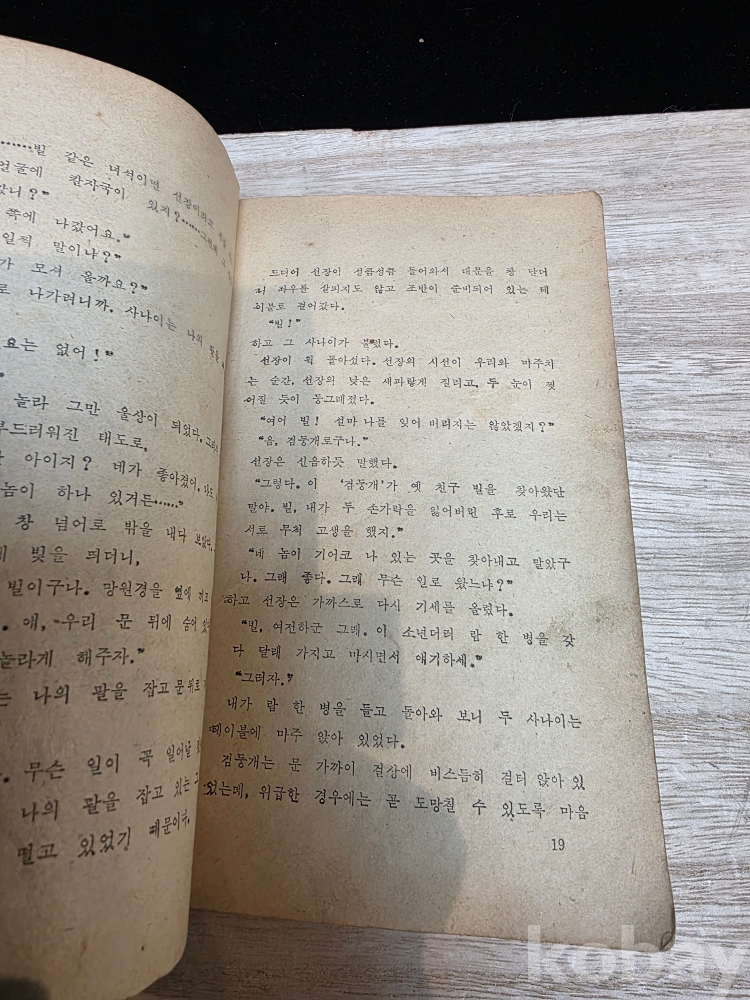 ……빌 같은 녀석이면 선장이라고
얼굴에 칼자국이 있지?……그런데
았니?"
쪽에 나갔어요."
일적 말이냐?"
가 모셔 올까요?"
로 나가려니까. 사나이는 나의 팔을
요는 없어!"
놀라 그만 울상이 되었다. 그러자
부드러워진 태도로,
아이지? 네가 좋아졌어.
놈이 하나 있거든……"
창 넘어로 밖을 내다 보았다.
빛을 띄더니,
빌이구나. 망원경을 옆에 끼고
. 얘, 우리 문 뒤에 숨어 있다
놀라게 해주자."
는 나의 팔을 잡고 문뒤로
. 무슨 일이 꼭 일어날
나의 팔을 잡고 있는 그
떨고 있었기 때문이다.
드디어 선장이 성큼성큼 들어와서 대문을 쾅 닫더
니 좌우를 살피지도 않고 조반이 준비되어 있는 테
이블로 걸어갔다.
"빌!"
하고 그 사나이가 불렀다.
선장이 휙 돌아섰다. 선장의 시선이 우리와 마주치
는 순간, 선장의 낯은 새파랗게 질리고, 두 눈이 찢
어질 듯이 둥그레졌다.
"여어 빌! 설마 나를 잊어 버리지는 않았겠지?"
"음, 검둥개로구나."
선장은 신음하듯 말했다.
"그렇다. 이 '검둥개'가 옛 친구 빌을 찾아왔단
말야. 빌, 내가 두 손가락을 잃어버린 후로 우리는
서로 무척 고생을 했지."
"네 놈이 기어코 나 있는 곳을 찾아내고 말았구
나. 그래 좋다. 그래 무슨 일로 왔느냐?"
하고 선장은 가까스로 다시 기세를 올렸다.
"빌, 여전하군 그래. 이 소년더러 람 한 병을 갖
다 달래 가지고 마시면서 얘기하세."
"그러자."
내가 람 한 병을 들고 돌아와 보니 두 사나이는
테이블에 마주 앉아 있었다.
검둥개는 문 가까이 걸상에 비스듬히 걸터 앉아 있
었는데, 위급한 경우에는 곧 도망칠 수 있도록 마음
19
kobay